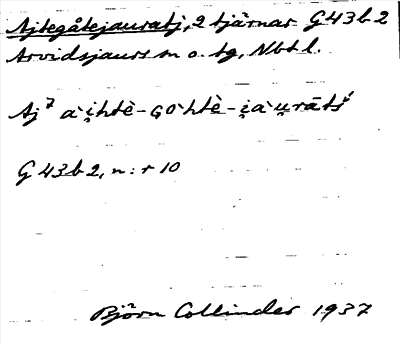 Ajtegåtejauratj, 2 tjärnar G43b2
Arvidsjaurs sn o. tg, Nbtl.
Aj⁷ a`i̯htè-go`htè-i̯a`u̯rātś
G 43 b 2, n:r 10
Björn Collinder 1937